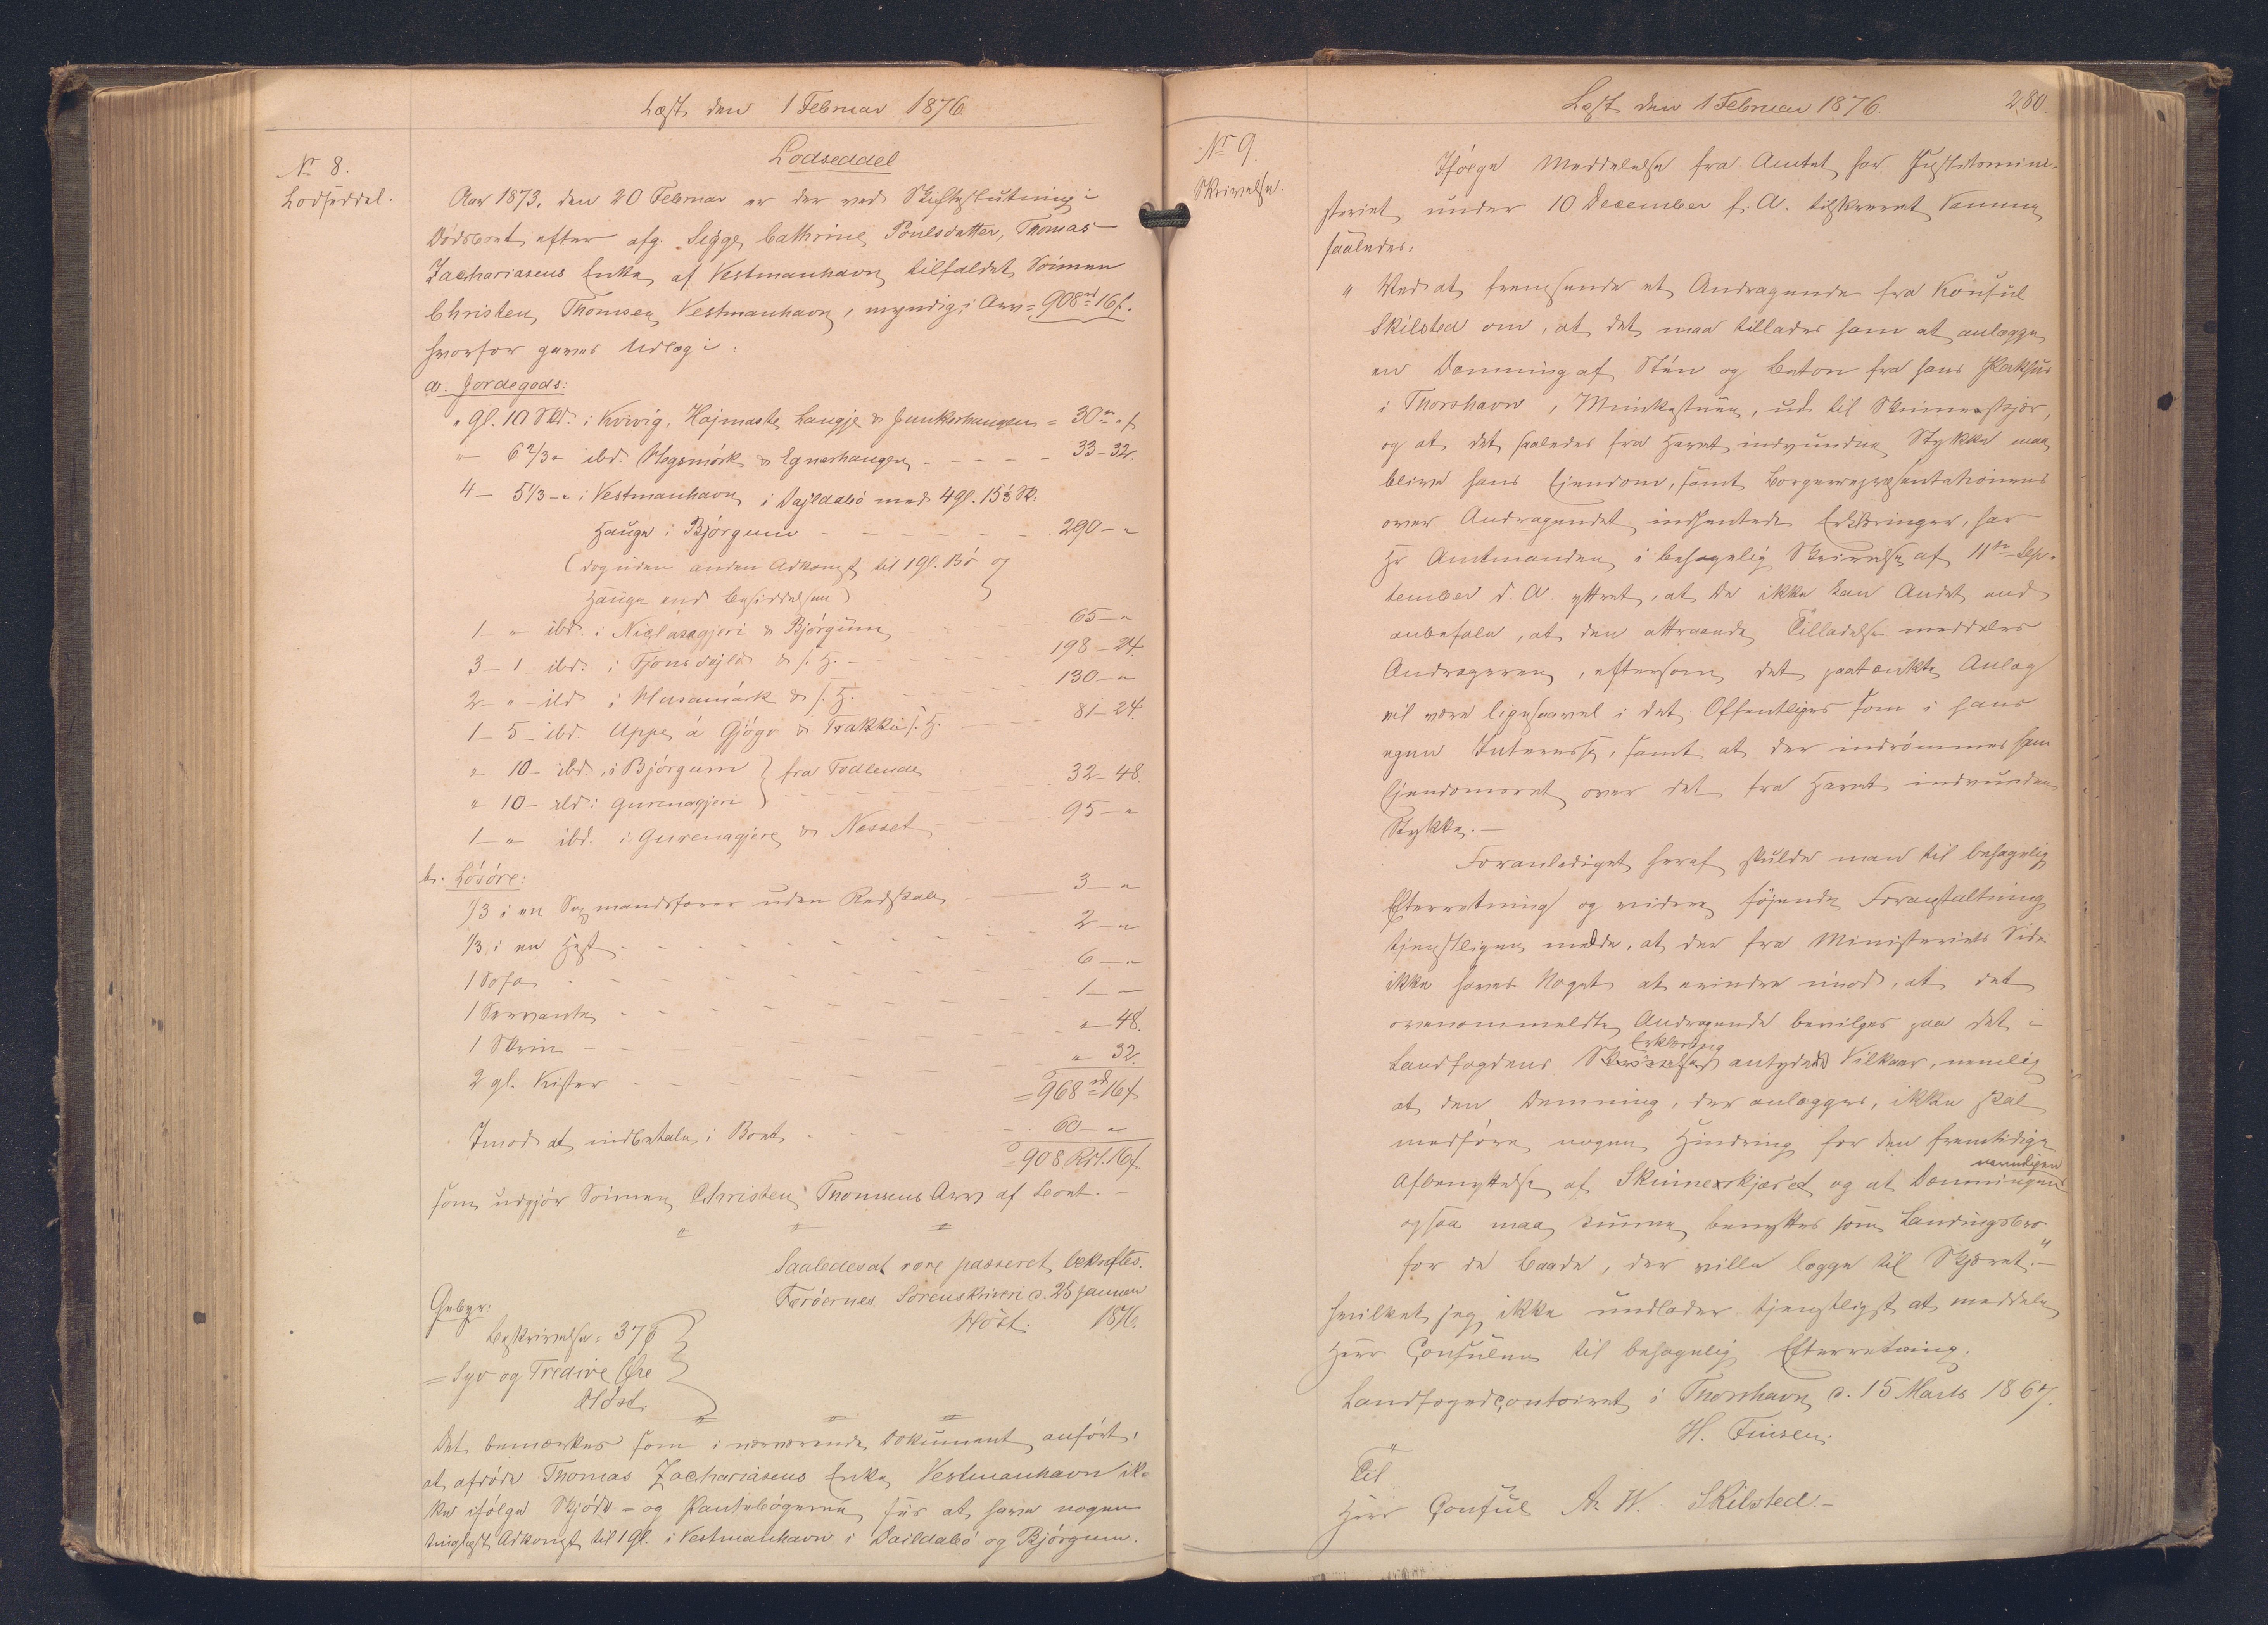 Læst den 1 Februar 1876.
No 8.
Lodseddel.
Lodseddel
Aar 1873, den 20 Februar er der ved Skifteslutning i
Dødsboet efter afg. Sigge Cathrine Poulsdatter, Thomas
Zachariasens Enke af Vestmanhavn tilfaldet Sönnen
Christen Thomsen Vestmanhavn, myndig, i Arv = 908 rd 16 ß.
hvorfor gives Udlæg i:
a. Jordegods:
" gl. 10 Skd. i Kvivig, Hajmaste Laugje & Junkerhaugen = 30 rd " ß
" — 6 2/3 " ibd. Hegsmörk & Egnerhaugen - - - - 33 - 32.
4 — 5 1/3 - " i Vestmanhavn i Dajldabö med 4 gl. 15 1/3 Sk.
Hauge i Björgum - - - - - - 290 - "
(dog uden anden Adkomst til 1 gl. Bö og
Hauge end Besiddelsen)
1 - " - ibd. i Niclasagjeri & Björgum 65 - "
3 - 1 - ibd. i Tjonsdajld & s. H. - 198 - 24.
2 - " - ibd. i Husamörk & s. H. - 130 - "
1 - 5 - ibd. Uppe á Gjógv & Trakki s. H. 81 - 24.
" 10 - ibd. i Björgum } fra Todlende
" 10 - ibd: Gurenagjeri } 32 - 48.
1 - " ibd. i Gurenagjere & Nesset 95 - "
b. Lösöre:
1/3 i en Sexmandsfarer uden Redskab 3 - "
1/3 i en Hest 2 - "
1 Sofa 6 - "
1 Servante 1 - "
1 Skrin " - 48.
2 gl. Kister " 32.
= 968 rd 16 ß
Imod at indbetale i Boet 60 - "
= 908 Rd. 16 ß
som udgjör Sönnen Christen Thomsens Arv af Boet. -
Saaledes at være passeret bekræftes.
Færöernes Sorenskriveri d. 25 Januar
1876.
Höst.
Gebyr:
Beskrivelse: 37 Ø
= Syv og Tredive Øre
Höst.
Det bemærkes som i nærværende Dokument anfört,
at afdöde Thomas Zachariasens Enke, Vestmanhavn ik-
ke ifölge Skjöde- og Pantebögerne sees at have nogen
tinglæst Adkomst til 1 gl. i Vestmanhavn i Daildabö og Björgum.
Læst den 1 Februar 1876.
280.
No 9.
Skrivelse.
Ifölge Meddelelse fra Amtet har Justitsmini-
steriet under 10 December f. A. tilskrevet samme
saaledes:
" Ved at fremsende et Andragende fra Konsul
Skilsted om, at det maa tillades ham at anlægge
en Dæmning af Sten og Beton fra hans Pakhus
i Thorshavn, Munkestuen, ud til Skinneskjær,
og at det saaledes fra Havet indvundne Stykke maa
blive hans Eiendom, samt Borgerrepræsentationens
over Andragendet indhentede Erklæringer, har
Hr Amtmanden i behagelig Skrivelse af 11te Sep-
tember d. A. yttret, at De ikke kan Andet end
anbefale, at den attraaede Tilladelse meddeles
Andrageren, eftersom det paatænkte Anlæg
vil være ligesaavel i det Offentliges som i hans
egen Interesse, samt at der indrömmes ham
Eiendomsret over det fra Havet indvundne
Stykke. -
Foranlediget heraf skulde man til behagelig
Efterretning og videre föjende Foranstaltning
tjenstligen melde, at der fra Ministeriets Side
ikke haves Noget at erindre imod, at det
ovenommeldte Andragende bevilges paa det i
Erklæring
Landfogdens Skrivelse antydede Vilkaar, nemlig
at den Dæmning, der anlægges, ikke skal
medföre nogen Hindring for den fremtidige
Afbenyttelse af Skinneskjæret og at Dæmningen
ogsaa maa kunne benyttes som Landingsbro
for de Baade, der ville lægge til Skjæret." -
hvilket jeg ikke undlader tjenstligst at meddele
Herr Consulen til behagelig Efterretning.
Landfogedcontoiret i Thorshavn d. 15 Marts 1867.
H. Finsen.
Til
Herr Consul A. W. Skilsted. -